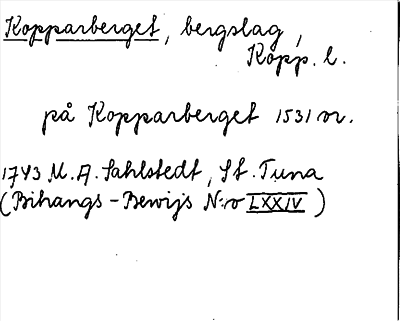 Kopparberget, bergslag,
Kopp. l.
på Kopparberget 1531 or.
1743 M. A. Sahlstedt, St. Tuna
(Bihangs-Bewijs N:o LXXIV)